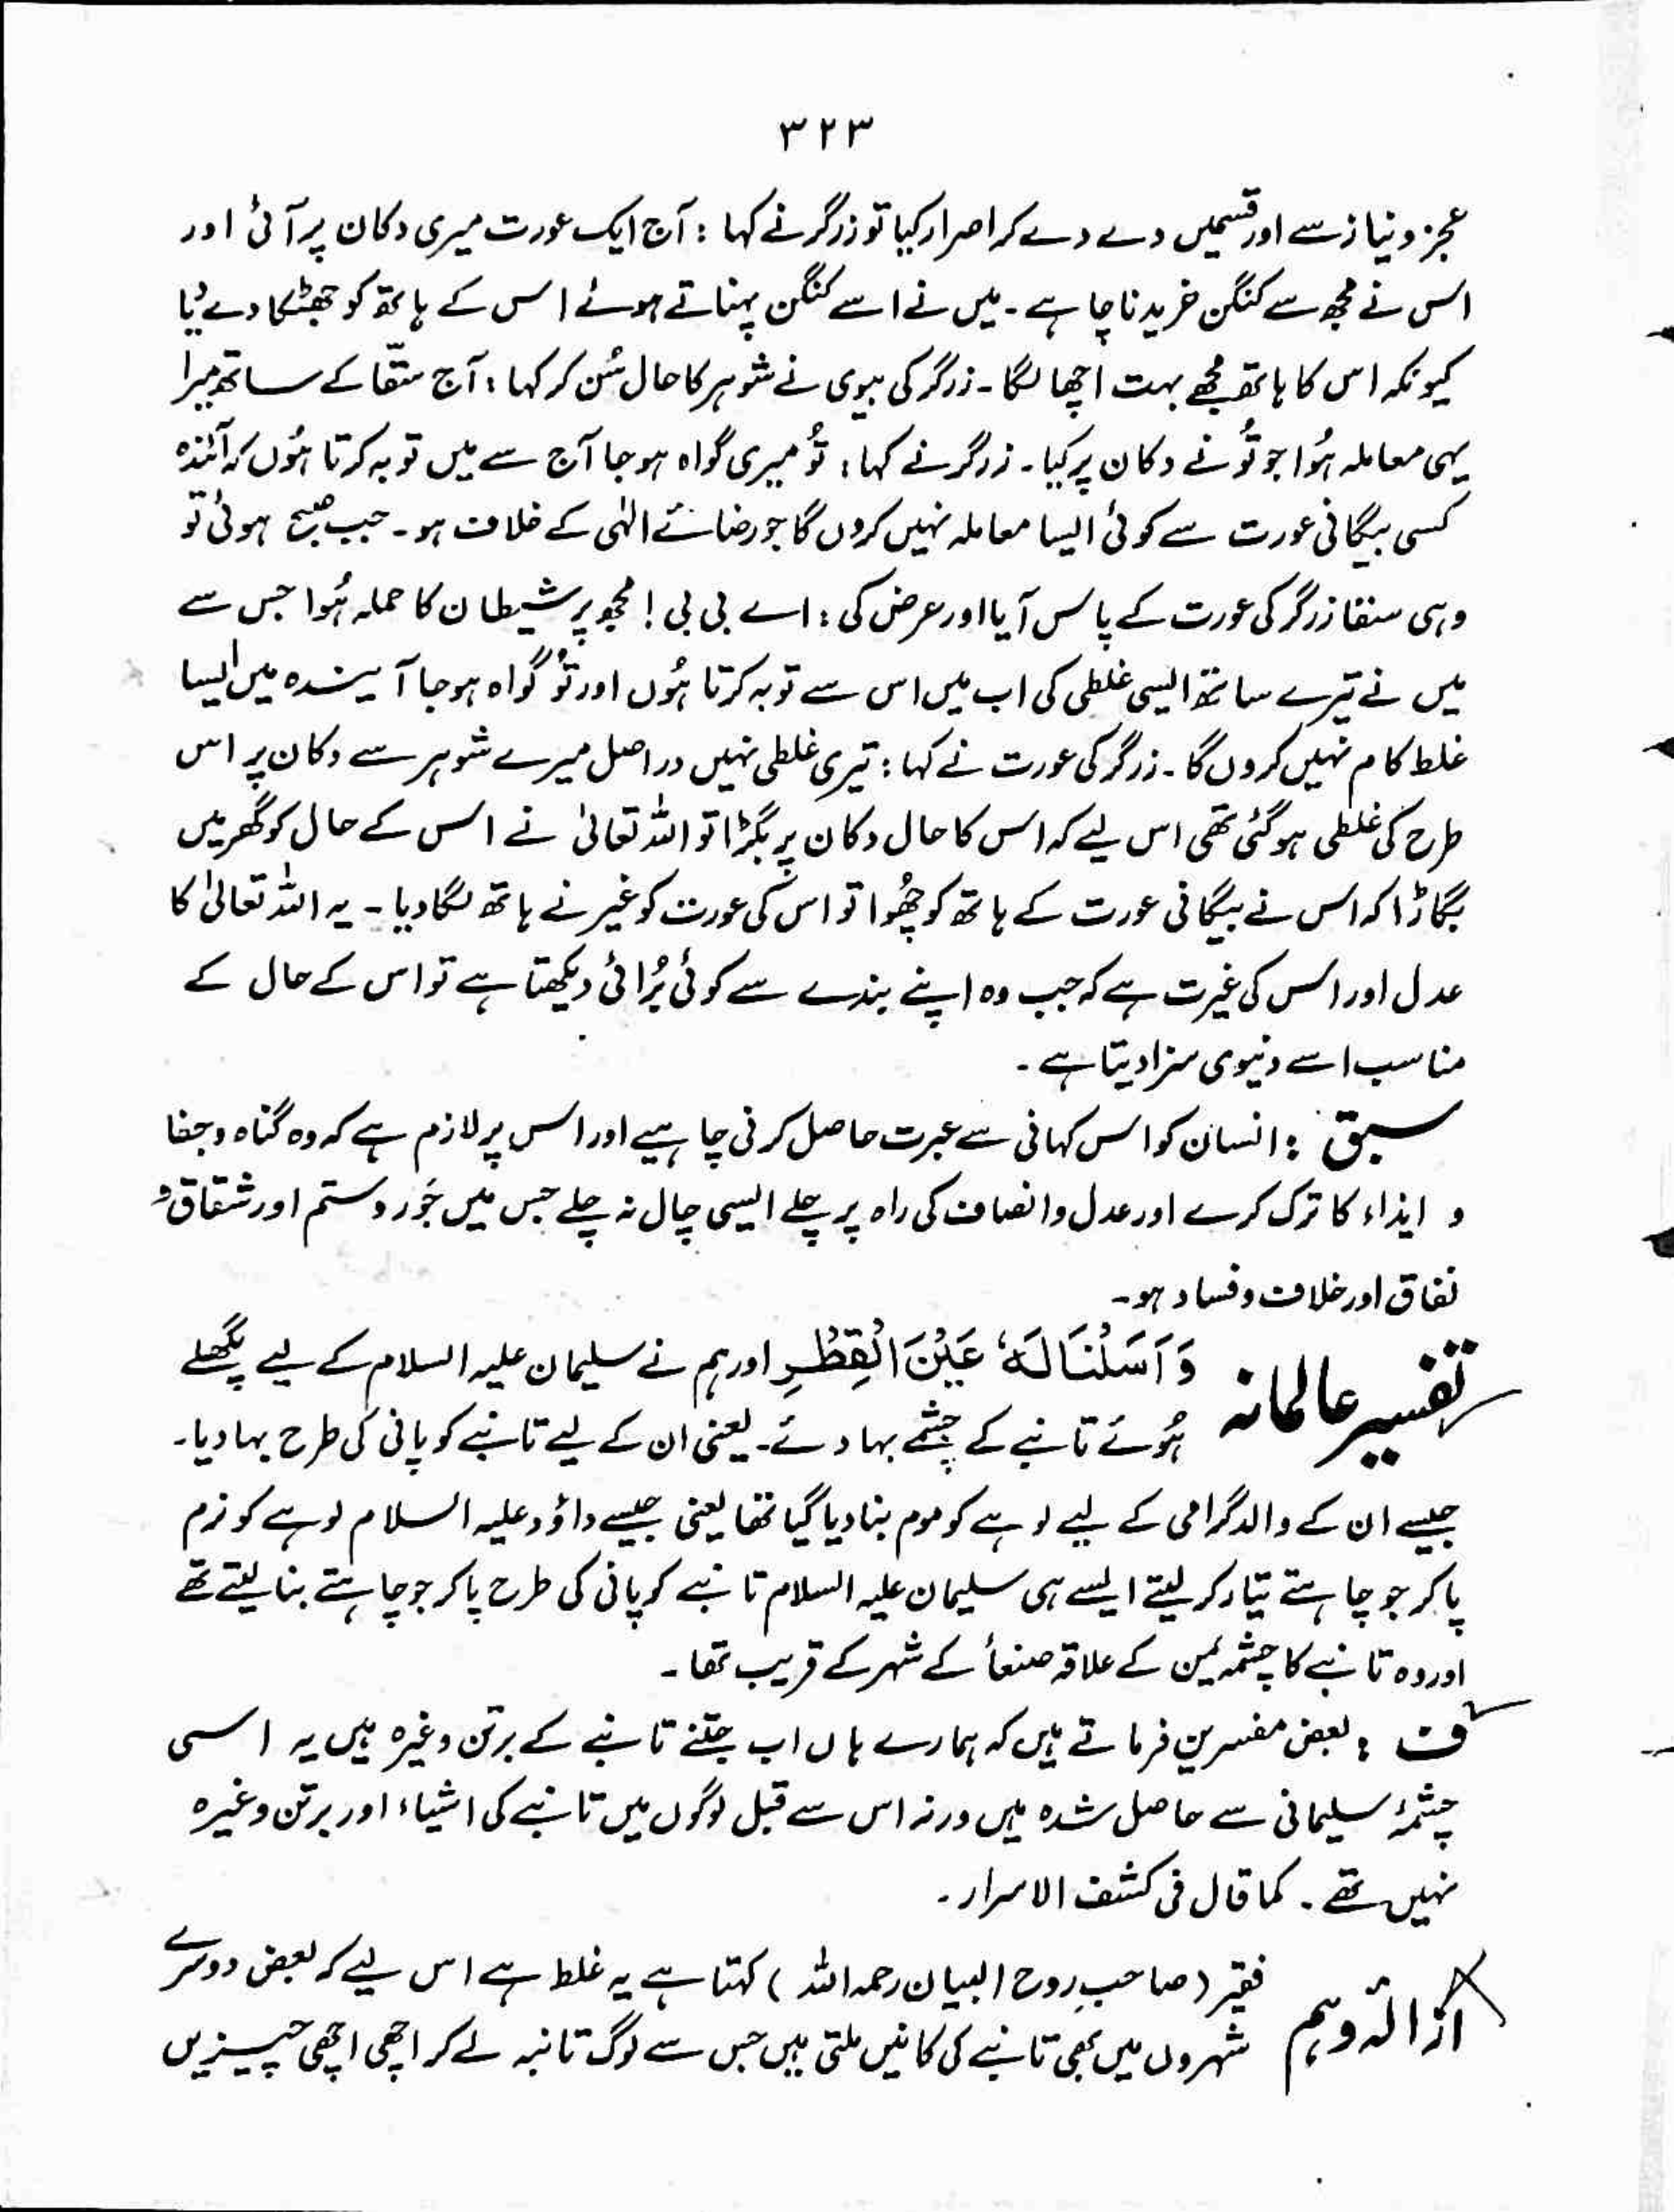 ۳۲۳
عجز و نیاز سے اور قسمیں دے دے کر اصرار کیا تو زرگر نے کہا : آج ایک عورت میری دکان پر آئی اور
اس نے مجھ سے کنگن خریدنا چاہے ۔ میں نے اسے کنگن پہناتے ہوئے اس کے ہاتھ کو جھٹکا دے دیا
کیونکہ اس کا ہاتھ مجھے بہت اچھا لگا ۔ زرگر کی بیوی نے شوہر کا حال سُن کر کہا : آج سقّا کے ساتھ میرا
یہی معاملہ ہُوا جو تُو نے دکان پر کیا ۔ زرگر نے کہا : تُو میری گواہ ہو جا آج سے میں توبہ کرتا ہُوں کہ آئندہ
کسی بیگانی عورت سے کوئی ایسا معاملہ نہیں کروں گا جو رضائے الٰہی کے خلاف ہو ۔ جب صبح ہوئی تو
وہی سقا زرگر کی عورت کے پاس آیا اور عرض کی : اے بی بی ! مجھ پر شیطان کا حملہ ہُوا جس سے
میں نے تیرے ساتھ ایسی غلطی کی اب میں اس سے توبہ کرتا ہُوں اور تُو گواہ ہو جا آیندہ میں ایسا
غلط کام نہیں کروں گا ۔ زرگر کی عورت نے کہا : تیری غلطی نہیں دراصل میرے شوہر سے دکان پر اس
طرح کی غلطی ہو گئی تھی اس لیے کہ اس کا حال دکان پر بگڑا تو اللہ تعالیٰ نے اس کے حال کو گھر میں
بگاڑا کہ اس نے بیگانی عورت کے ہاتھ کو چھُوا تو اس کی عورت کو غیر نے ہاتھ لگا دیا ۔ یہ اللہ تعالیٰ کا
عدل اور اس کی غیرت ہے کہ جب وہ اپنے بندے سے کوئی بُرائی دیکھتا ہے تو اس کے حال کے
مناسب اسے دنیوی سزا دیتا ہے ۔
سبق : انسان کو اس کہانی سے عبرت حاصل کرنی چاہیے اور اس پر لازم ہے کہ وہ گناہ و جفا
و ایذاء کا ترک کرے اور عدل و انصاف کی راہ پر چلے ایسی چال نہ چلے جس میں جَور و ستم اور شقاق و
نفاق اور خلاف و فساد ہو ۔
تفسیر عالمانہ وَ اَسَلْنَا لَهٗ عَیْنَ الْقِطْرِ اور ہم نے سلیمان علیہ السلام کے لیے پگھلے
ہُوئے تانبے کے چشمے بہا دئے ۔ یعنی ان کے لیے تانبے کو پانی کی طرح بہا دیا ۔
جیسے ان کے والد گرامی کے لیے لوہے کو موم بنا دیا گیا تھا یعنی جیسے داؤد علیہ السلام لوہے کو نرم
پا کر جو چاہتے تیار کر لیتے ایسے ہی سلیمان علیہ السلام تانبے کو پانی کی طرح پا کر جو چاہتے بنا لیتے تھے
اور وہ تانبے کا چشمہ یمن کے علاقہ صنعأ کے شہر کے قریب تھا ۔
ف : بعض مفسرین فرماتے ہیں کہ ہمارے ہاں اب جتنے تانبے کے برتن وغیرہ ہیں یہ اسی
چشمۂ سلیمانی سے حاصل شدہ ہیں ورنہ اس سے قبل لوگوں میں تانبے کی اشیاء اور برتن وغیرہ
نہیں تھے ۔ کما قال فی کشف الاسرار ۔
ازالۂ وہم فقیر ( صاحبِ روح البیان رحمہ اللہ ) کہتا ہے یہ غلط ہے اس لیے کہ بعض دوسرے
شہروں میں بھی تانبے کی کانیں ملتی ہیں جس سے لوگ تانبہ لے کر اچھی اچھی چیزیں